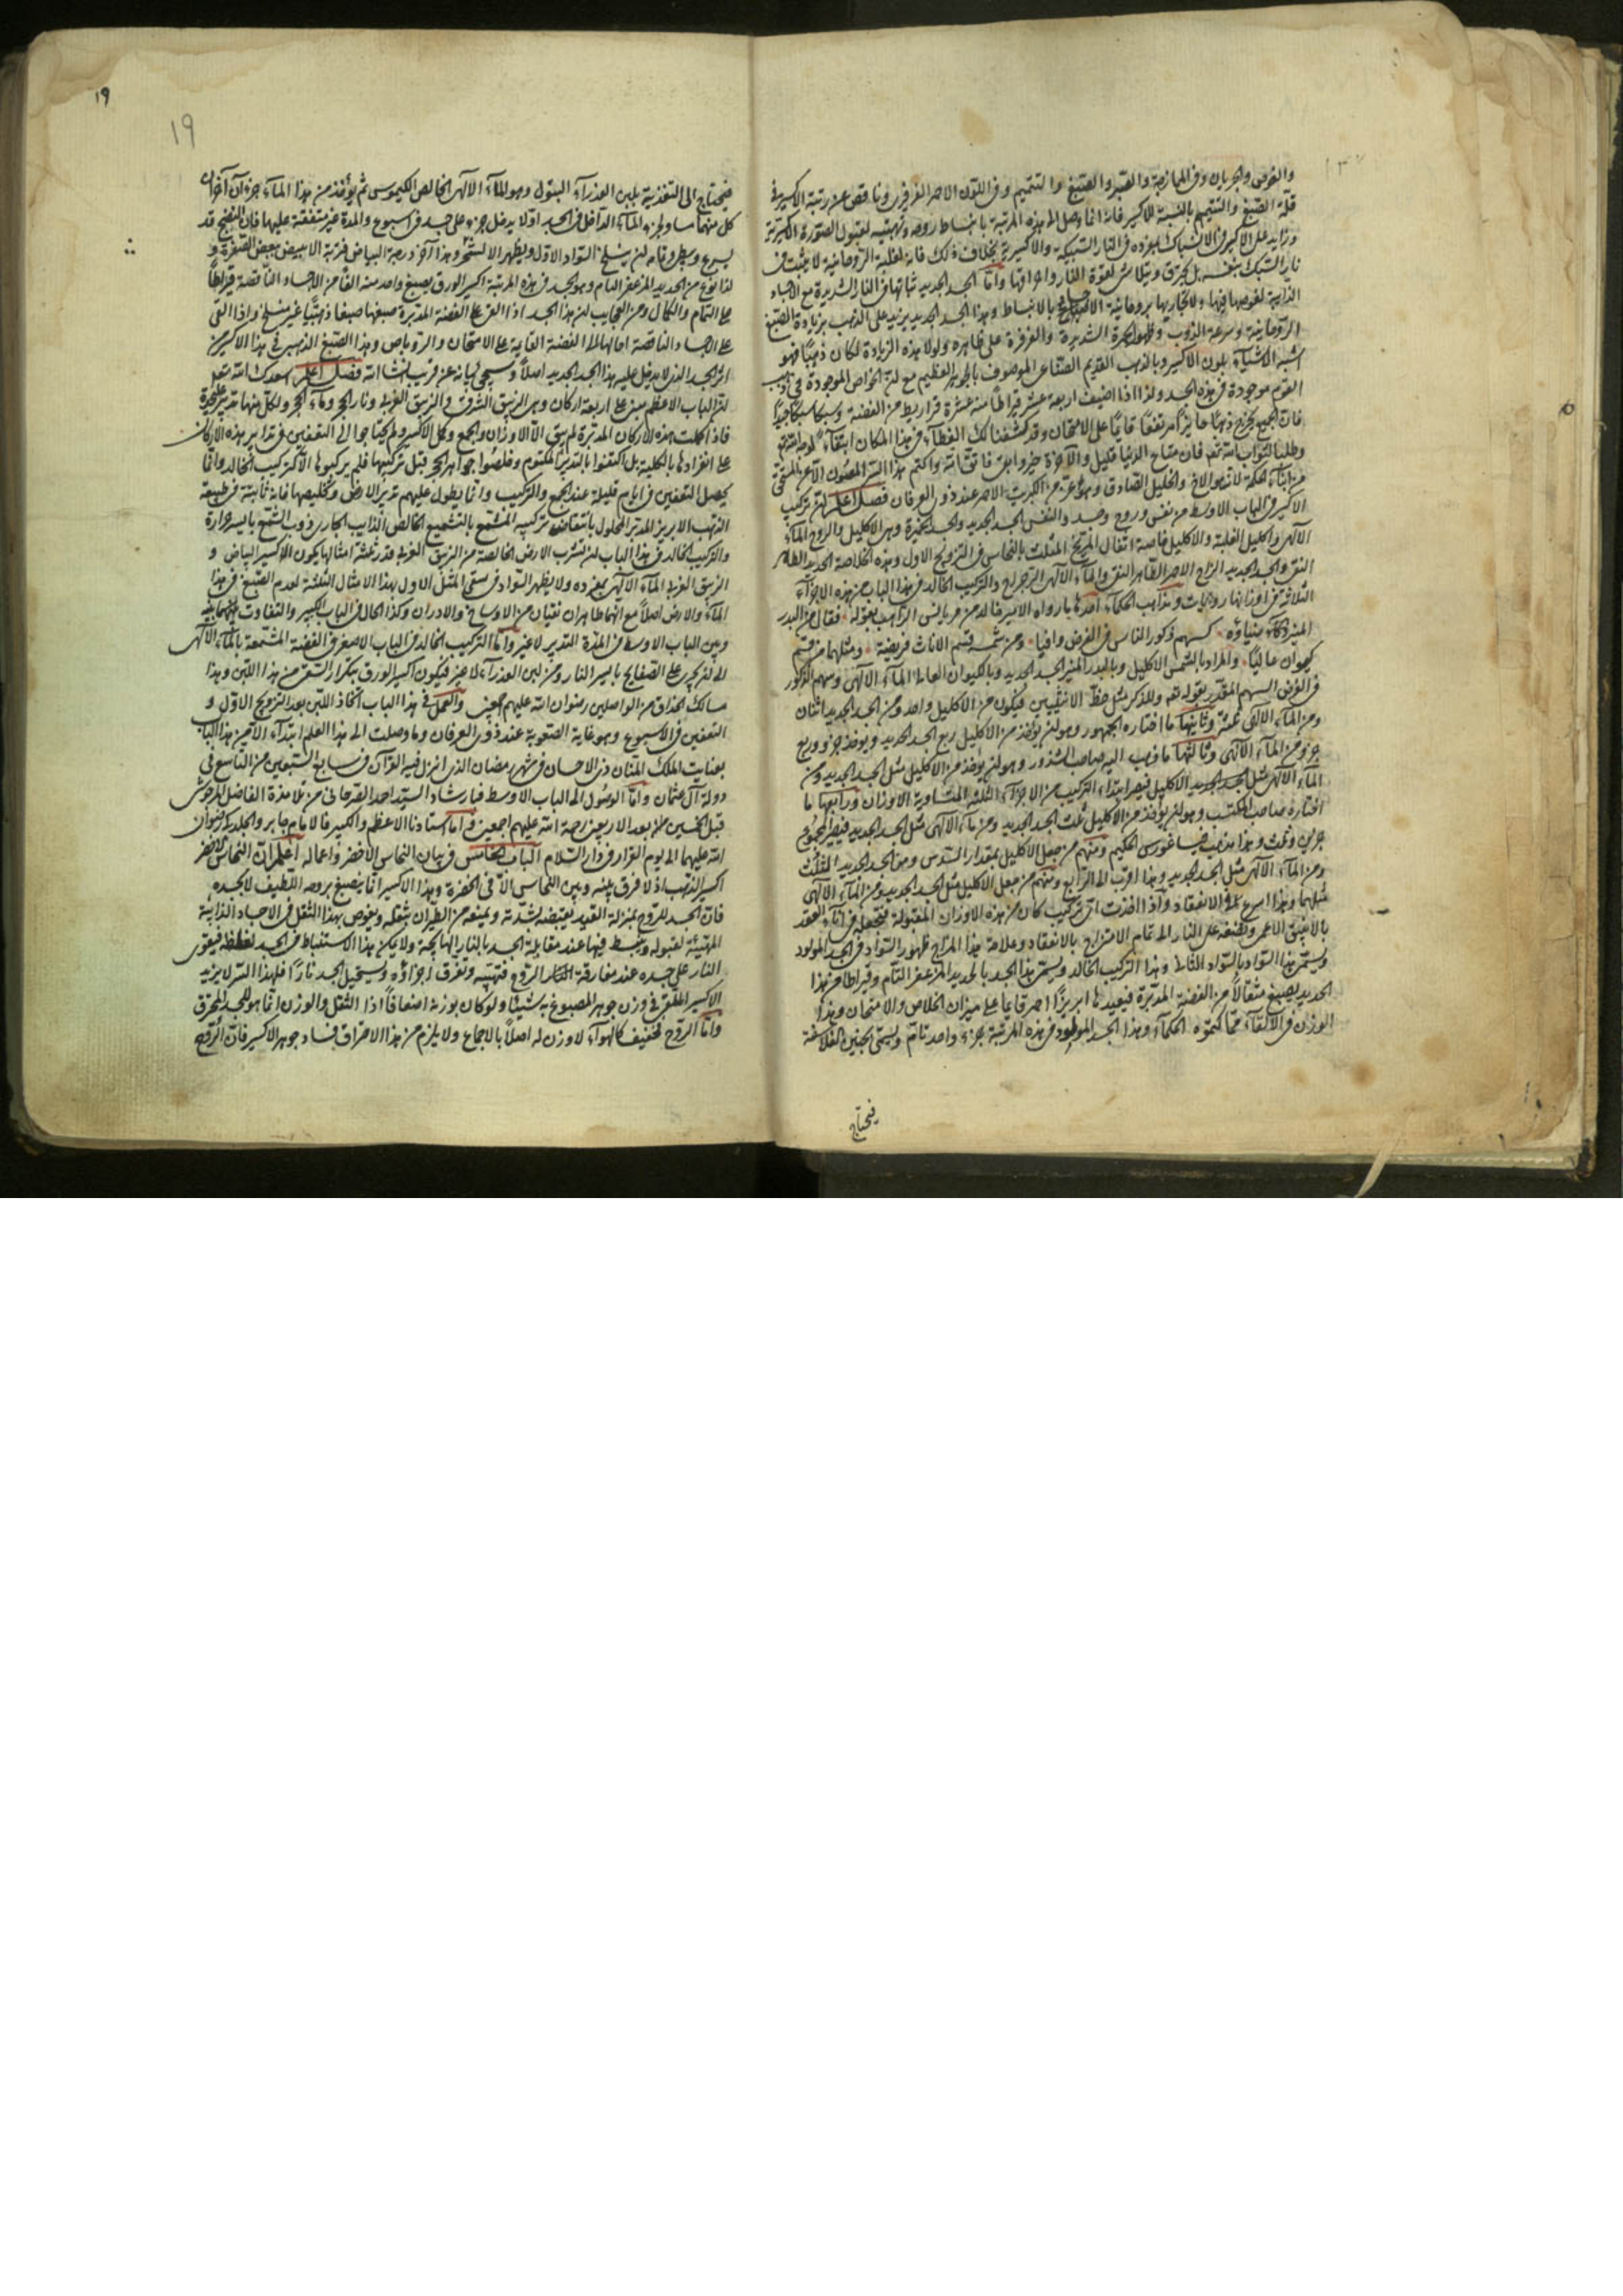 والغوص والجريان وفي الممازجة والصبر والصبغ والتتميم وفي اللون الاحمر الفرفيرى وناقص عن رتبة الاكسير في
قلة الصبغ والتتميم بالنسبة للاكسير فانه انما وصل الى هذه المرتبة بانبساط روحه وتهيئته لقبول الصورة الاكسيرية
وزايد على الاكسير في الانسباك بمفرده في النار السبكية والاكسيرية بخلاف ذلك فانه لغلبة الروحانية لا يثبت في
نار السبك بنفسه بل يحترق ويتلاشى لقوة النار واحراقها واما الجسد الجديد ثباتها في النار الشديرة مع الاجساد
الذايبة لغوصها فيها ولاتحادها بروحانية الاصباغ بالانبساط وهذا الجسد الجديد يزيد على الذهب بزيادة الصبغ
الروحانية وسرعة الذوب وظهور الحمرة الشديدة والفرفرة على ظاهره ولولا هذه الزيادة لكان ذهبا فهو
اشبه الاشياء بلون الاكسير وبالذهب القديم الصناعى الموصوف بالجوهر العظيم مع ان الخواص الموجودة في ذهب
القوم موجودة في هذه الجسد ولذا اذا اضيف اربعة عشر قيراطا منه عشرة قراريط من الفضة وسبكا سبكا جيدا
فان الجميع يخرج ذهبا حايزا مرتفعا قايما على الامتحان وقد كشفنا لك الغطاء في هذا المكان ابتغاء لوجه الله
وطلبا لثواب الله تعالى فان متاع الدنيا قليل والآخرة خير وابقى فاتق الله واكتم هذا السر المصون الا عن المستحق
من ابناء الحكمة لا تصو الاخ والخليل الصادق وهو اعز من الكبريت الاحمر عند ذوى العرفان فصل اعلم ان تركيب
الاكسير في الباب الاوسط من نفس وروح وجسد والنفس الجسد الجديد والجسد الخميرة وهى الاكليل والروح الماء
الالهى واكليل الغلبة والاكليل خاصة اثفال المريخ المثلث بالنحاس في التزويج الاول وهذه الخلاصة الحديد الطاهر
النقى والجسد الجديد الزاج الاحمر الطاهر النقى والماء الالهى الرجراج والتركيب الخالد في هذا الباب من هذه الاجزاء
الثلاثة في اوزانها روايات ومذاهب الحكماء احدها ما رواه الامير خالد عن مريانس الراهب بقوله فقال من البدر
المنير ذكاء ضياؤه كسهم ذكور الناس في الفرض وافيا ومن شمسه قسم الاناث فريضة ومثلهما من قسم
كيوان عاليا والمراد بالشمس الاكليل وبالبدر المنير الجسد الجديد وبالكيوان العالى الماء الالهى وسهم الذكور
في الفرض السهم المقدر بقوله تعالى وللذكر مثل حظ الانثيين فيكون من الاكليل واحد ومن الجسد الجديد اثنان
ومن الماء الالهى ثلثة وثانيها ما اختاره الجمهور وهو ان يؤخذ من الاكليل ربع الجسد الجديد ويؤخذ جزء وربع
جزء من الماء الالهى وثالثها ما ذهب اليه صاحب الشذور وهو ان يؤخذ من الاكليل مثل الجسد الجديد ومن
الماء الالهى مثل الجسد الجديد الاكليل فيصير ابتداء التركيب من الاجزاء الثلثة المتساوية الاوزان ورابعها ما
اختاره صاحب المكتسب وهو ان يؤخذ من الاكليل ثلث الجسد الجديد ومن ماء الالهى مثل الجسد الجديد فيصير المجموع
جزئين وثلث وهذا مذهب فيثاغورس الحكيم ومنهم من جعل الاكليل بمقدار السدس ومن الجسد الجديد الثلث
ومن الماء الالهى مثل الجسد الجديد وهذا اقرب الى الرابع ومنهم من جعل الاكليل مثل الجسد الجديد ومن الماء الالهى
مثلهما وهذا اسرع في الانعقاد واذا اخذت اى تركيب كان من هذه الاوزان المقبولة فتجعله في اناء العقد
بالانبيق الاعمى وتضعه على النار الى تمام الامتزاج بالانعقاد وعلامة هذا المزاج ظهور السواد في الجسد المولود
ويستمر هذا السواد بالسواد الثانى وهذا التركيب الخالد ويسمى هذا الجسد بالحديد المزعفر التام وقيراطا من هذا
الحديد يصبغ مثقالا من الفضة المدبرة فيعيدها ابريزا احمر قايما على ميزان الخلاص والامتحان وهذا
الوزن في الالقاء مما كتموه الحكماء وهذا الجسد المولود في هذه المرتبة بجزء واحد تام ويسمى بجنين الفلاسفة
فيحتاج
١٩
19
فيحتاج الى التغذية بلبن العذراء البتول وهو الماء الالهى الخالص الكيموسى ثم يؤخذ من هذا الماء جزءان آخران
كل منهما مساو لجزء الماء الداخل في الجسد اولا يدخل جزء على جسد في اسبوع والمدة غير متفقة عليها فان النضج قد
يسرع ويبطى وقام ان ينسلخ السواد الاول ويظهر الا لشحر وهذا آخر درجة البياض قربة الابيض ببعض الصفرة و
لذا نوع من الحديد المزعفر التام وهو الجسد في هذه المرتبة اكسير الورق يصبغ واحد منه الفا من الاجساد الناقصة قيراطا
على التمام والكمال ومن العجايب ان هذا الجسد اذا القى على الفضة المدبرة صبغها صبغا ذهبيا غير منسلخ واذا القى
على الاجساد الناقصة احالها الى الفضة القايمة على الامتحان والروباص وهذا الصبغ الذهبى في هذا الاكسير من
اثر الجسد الذى لا يدخل عليه هذا الجسد الجديد اصلا وسيجى بيانه عن قريب ان شا الله فصل اعلم اسعدك الله تعالى
ان الباب الاعظم مبنى على اربعة اركان وهى الزيبق الشرقى والزيبق الغربى ونار الحجر وماء الحجر ولكل منها تدبير على حدة
فاذا كملت هذه الاركان المدبرة لم يبق الا الاوزان والجمع وكل الاكسير ولم يحتاجوا الى التعفين في تدابير هذه الاركان
على انفرادها بالكلية بل اكتفوا بالتدبير المكتوم وخلصوا جواهر الحجر قبل تركيبها فلم يركبوها الا تركيب الخالد وانما
يحصل التعفين في ايام قليلة عند الجمع والتركيب وانما يطول عليهم تدبير الارض وتخليصها فانه ثابتة في طبيعة
الذهب الابريز المدبر المحلول بانتقاض تركيبه المشمع بالتشميع الخالص الذايب الجارى ذوب الشمع بايسر حرارة
والتركيب الخالد في هذا الباب ان تشرب الارض الخالصة من الزيبق الغربى قدر ثلثة امثالها يكون الاكسير البياض و
الزيبق الغربى الماء الالهى بمفرده ولا يظهر السواد في سقى المثل الاول بهذا الامثال الثلثة لعدم الصبغ في هذا
الماء والارض اصلا مع انهما طاهران نقيان من الاوساخ والادران وكذا الحال في الباب الكبير والتفاوت بينهما
وبين الباب الاوسط في المدة التدبير لا غير واما التركيب الخالد في الباب الاصغر في الفضة المشمعة بالماء الالهى
الى ان يجرى على الصفايح بايسر النار ومن لبن العذراء لا غير فيكون اكسير الورق بتكرار السقى من هذا اللبن وهذا
مسالك الحذاق من الواصلين رضوان الله عليهم اجمعين والعمل في هذا الباب اتخاذ اللبن بعد التزويج الاول و
التعفين في الاسبوع وهو غاية الصعوبة عند ذوى العرفان وما وصلت الى هذا العلم ابتداء الا من هذا الباب
بعنايت الملك المنان ذى الاحسان في شهر رمضان الذى انزل فيه القرآن في سابع السبعين من التاسع في
دولة آل عثمان واما الوصول الى الباب الاوسط فبارشاد السيد احمد القرمانى من تلامذة الفاضل المرعوش
قبل الخمسين من بعد الاربعين رحمة الله عليهم اجمعين واما استادنا الاعظم والكبير فالامام جابر والجلدكى رضوان
الله عليهما الى يوم القرار في دار السلام الباب الخامس في بيان النحاس الاخضر واعماله اعلم ان النحاس الاخضر
اكسير الذهب اذ لا فرق بينه وبين النحاس الا في الخضرة وهذا الاكسير انما يصبغ بروحه اللطيف لا بجسده
فان الجسد للروح بمنزلة القيد يقبضه لشدته ويمنعه من الطيران بثقله ويغوص بهذا الثقل في الاجساد الذايبة
المهيئة لقبوله وينبسط فيها عند مقابلة الجسد بالنار الهايجة ولا يمكن هذا الاستنباط في الجسد لغلظه فيقوى
النار على جسده عند مفارقة الروح فتهبيه وتفرق اجزاؤه ويستحيل الجسد نارا فلهذا السر لا يزيد
الاكسير الملقى في وزن جوهر المصبوغ به شيئا ولو كان بوزنه اضعافا اذا الثقل والوزن انما هو للجسد المحترق
واما الروح تخفيف كالهواء لا وزن له اصلا بالاجماع ولا يلزم من هذا الاحتراق فساد جوهر الاكسير فان الروح